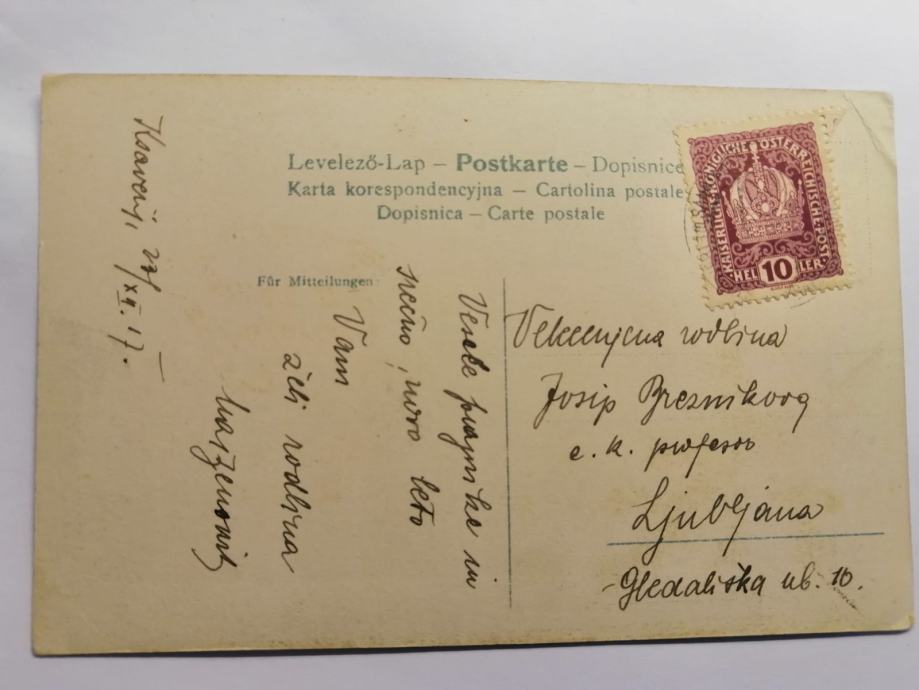 Levelező-Lap – Postkarte – Dopisnice
Karta korespondencyjna – Cartolina postale
Dopisnica – Carte postale
KAISERLICHE KÖNIGLICHE ÖSTERREICHISCHE POST
HEL 10 LER
Für Mitteilungen:
22/XII. 17.
Vesele praznike in
srečno novo leto
Vam
želi rodbina
Velecenjena rodbina
Josip Breznikova
c. k. profesor
Ljubljana
Gledališka ul. 10.